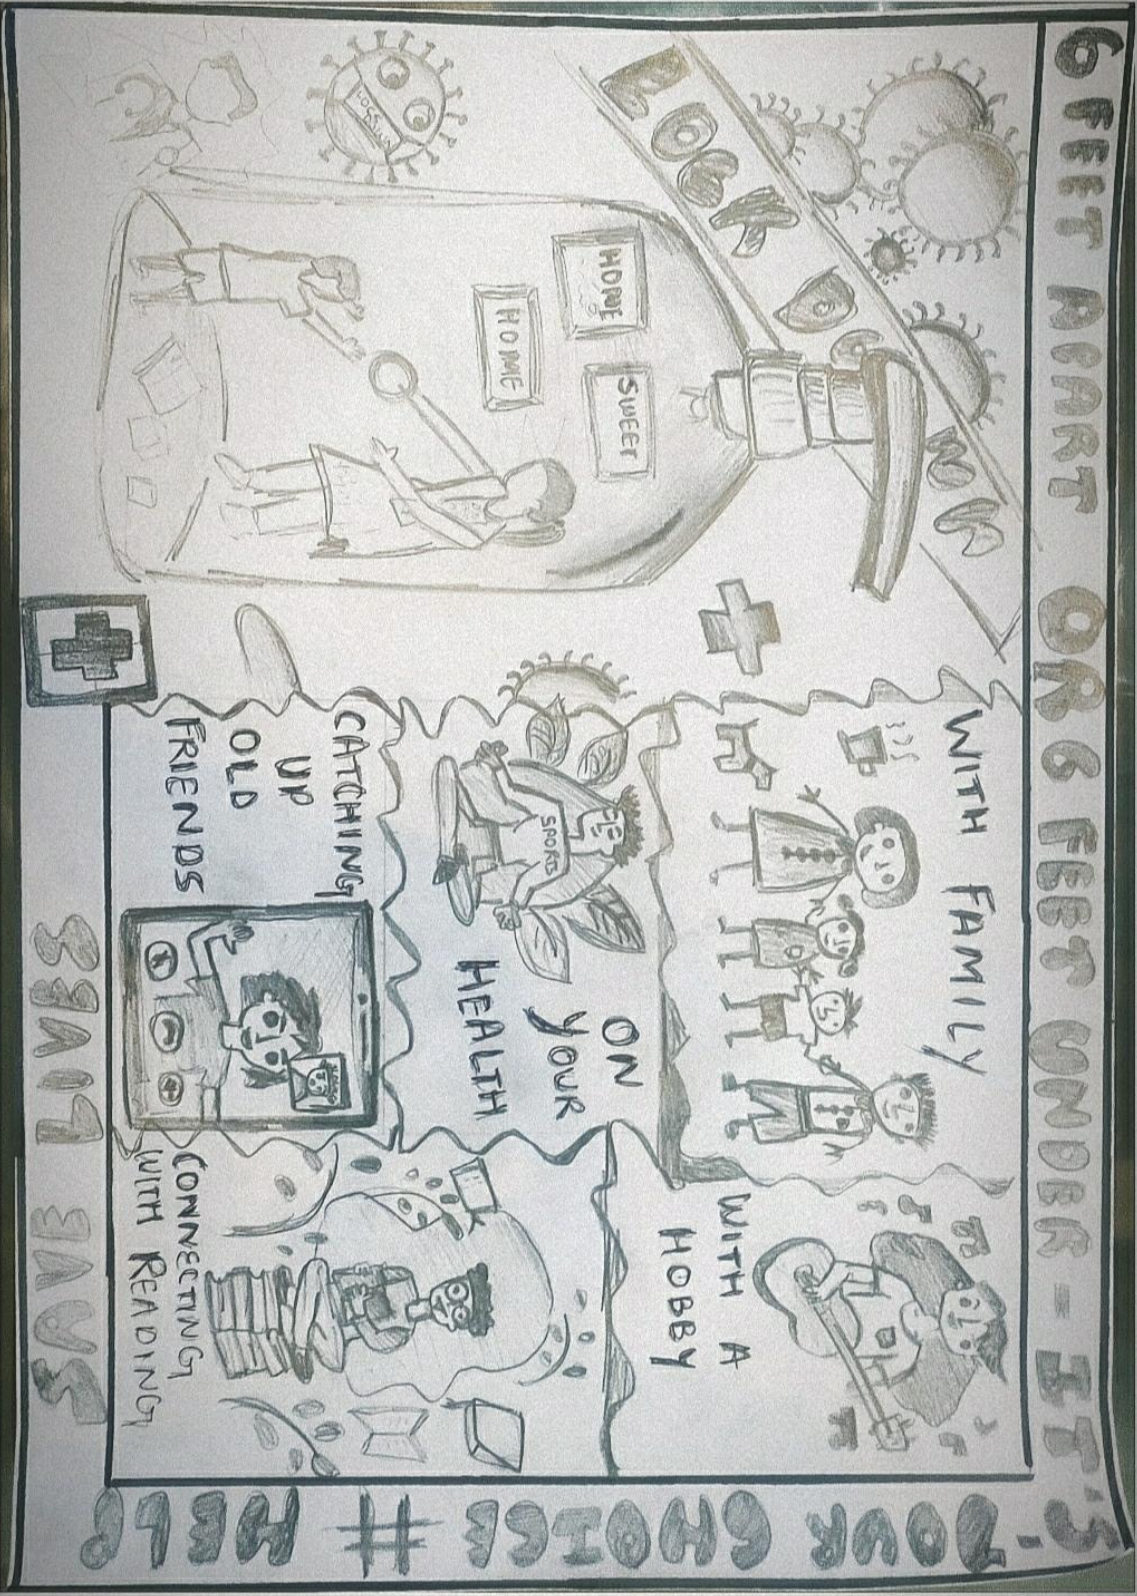 6 FEET APART OR 6 FEET UNDER - IT'S
YOUR CHOICE # HELP
SAVE LIVES
LOCK DOWN
HOME
SWEET
HOME
WITH FAMILY
WITH A
HOBBY
SPORTS
ON
YOUR
HEALTH
CATCHING
UP
OLD
FRIENDS
CONNECTING
WITH READING